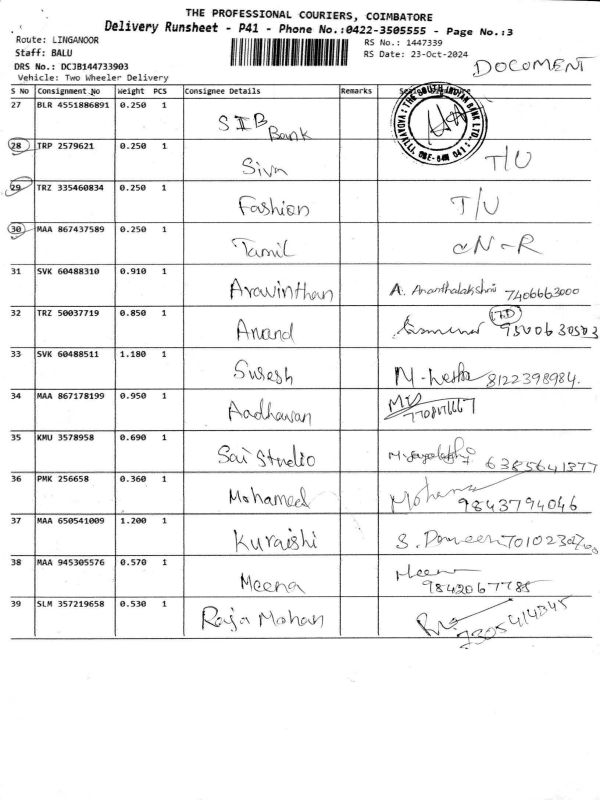 THE PROFESSIONAL COURIERS, COIMBATORE
Delivery Runsheet - P41 - Phone No.:0422-3505555 - Page No.:3
Route: LINGANOOR
RS No.: 1447339
Staff: BALU
RS Date: 23-Oct-2024
DRS No.: DCJB144733903
DOCUMENT
Vehicle: Two Wheeler Delivery
S No Consignment.No Weight PCS Consignee Details Remarks
27 BLR 4551886891 0.250 1 SIB Bank
THE SOUTH INDIAN BANK LTD.
28 TRP 2579621 0.250 1 Siva T/U
29 TRZ 335460834 0.250 1 Fashion T/U
30 MAA 867437589 0.250 1 Tamil CN-R
31 SVK 60488310 0.910 1 Aravinthan A. Ananthalakshmi 7406663000
32 TRZ 50037719 0.850 1 Anand 9500630503
33 SVK 60488511 1.180 1 Suresh 8122398984.
34 MAA 867178199 0.950 1 Aadhavan
35 KMU 3578958 0.690 1 Sai Studio 6385641377
36 PMK 256658 0.360 1 Mohamed 9843794046
37 MAA 650541009 1.200 1 Kuraishi
38 MAA 945305576 0.570 1 Meena 9842067785
39 SLM 357219658 0.530 1 Raja Mohan 7305414345